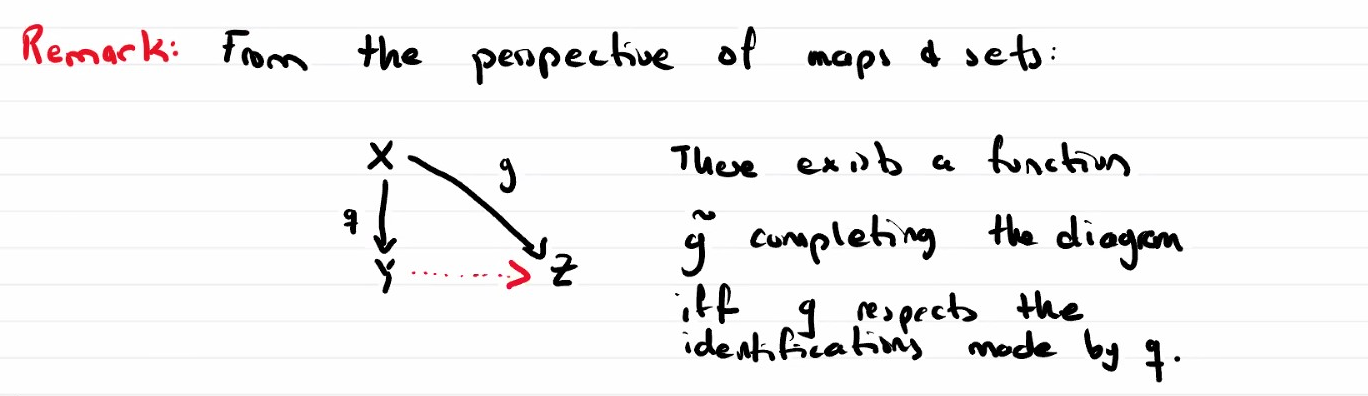 Remark: From the perspective of maps & sets:
X
g
There exists a function
q
g̃ completing the diagram
Y
Z
iff g respects the
identifications made by q.